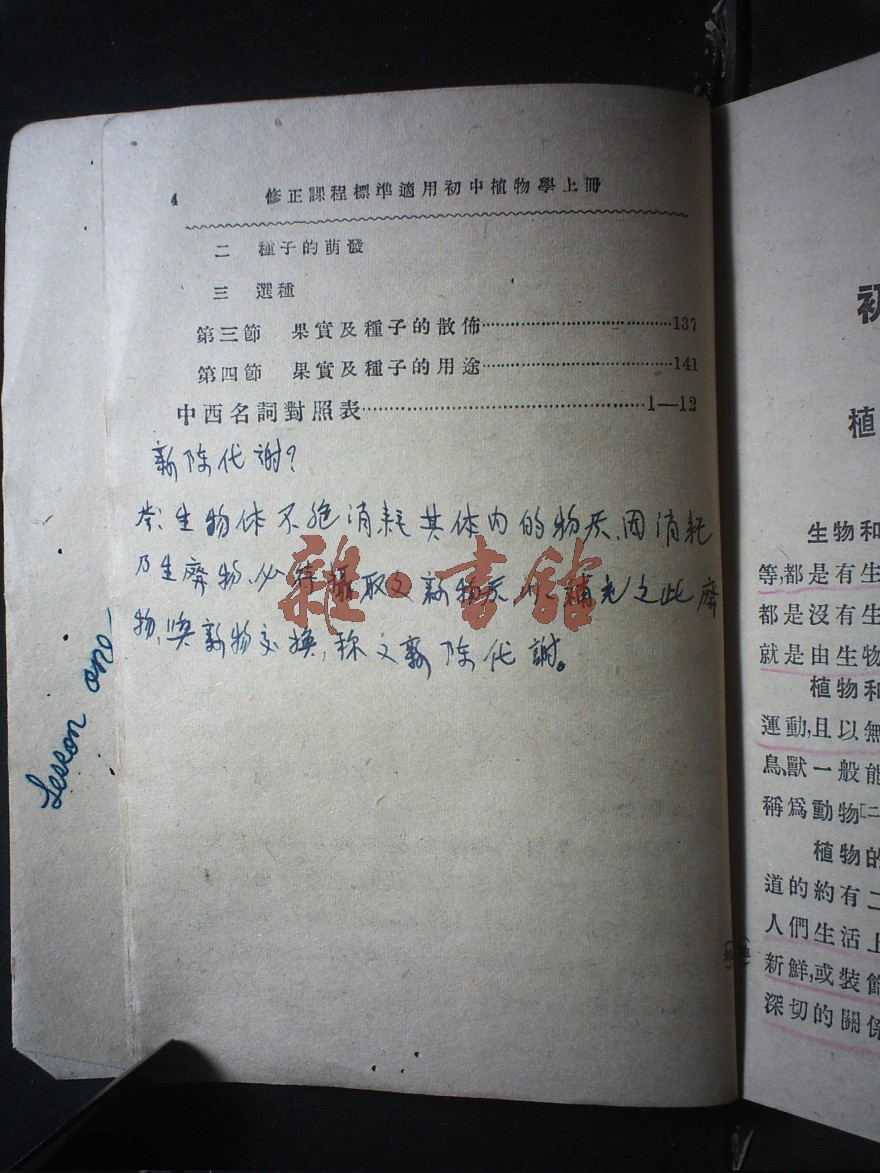 4 修正課程標準適用初中植物學上冊
二 種子的萌發
三 選種
第三節 果實及種子的散佈 137
第四節 果實及種子的用途 141
中西名詞對照表 1—12
新陈代謝?
生物体不絕消耗其体内的物质,因消耗
及生廢物,必待攝取 新物质 補充之此廢
物,與新物交換,称 新陈代謝。
Lesson one
雜·書館
初
植
生物和
等,都是有生
都是沒有生
就是由生物
植物和
運動,且以無
鳥獸一般能
稱爲動物[二
植物的
道的約有二
人們生活上
新鮮,或裝飾
深切的關係